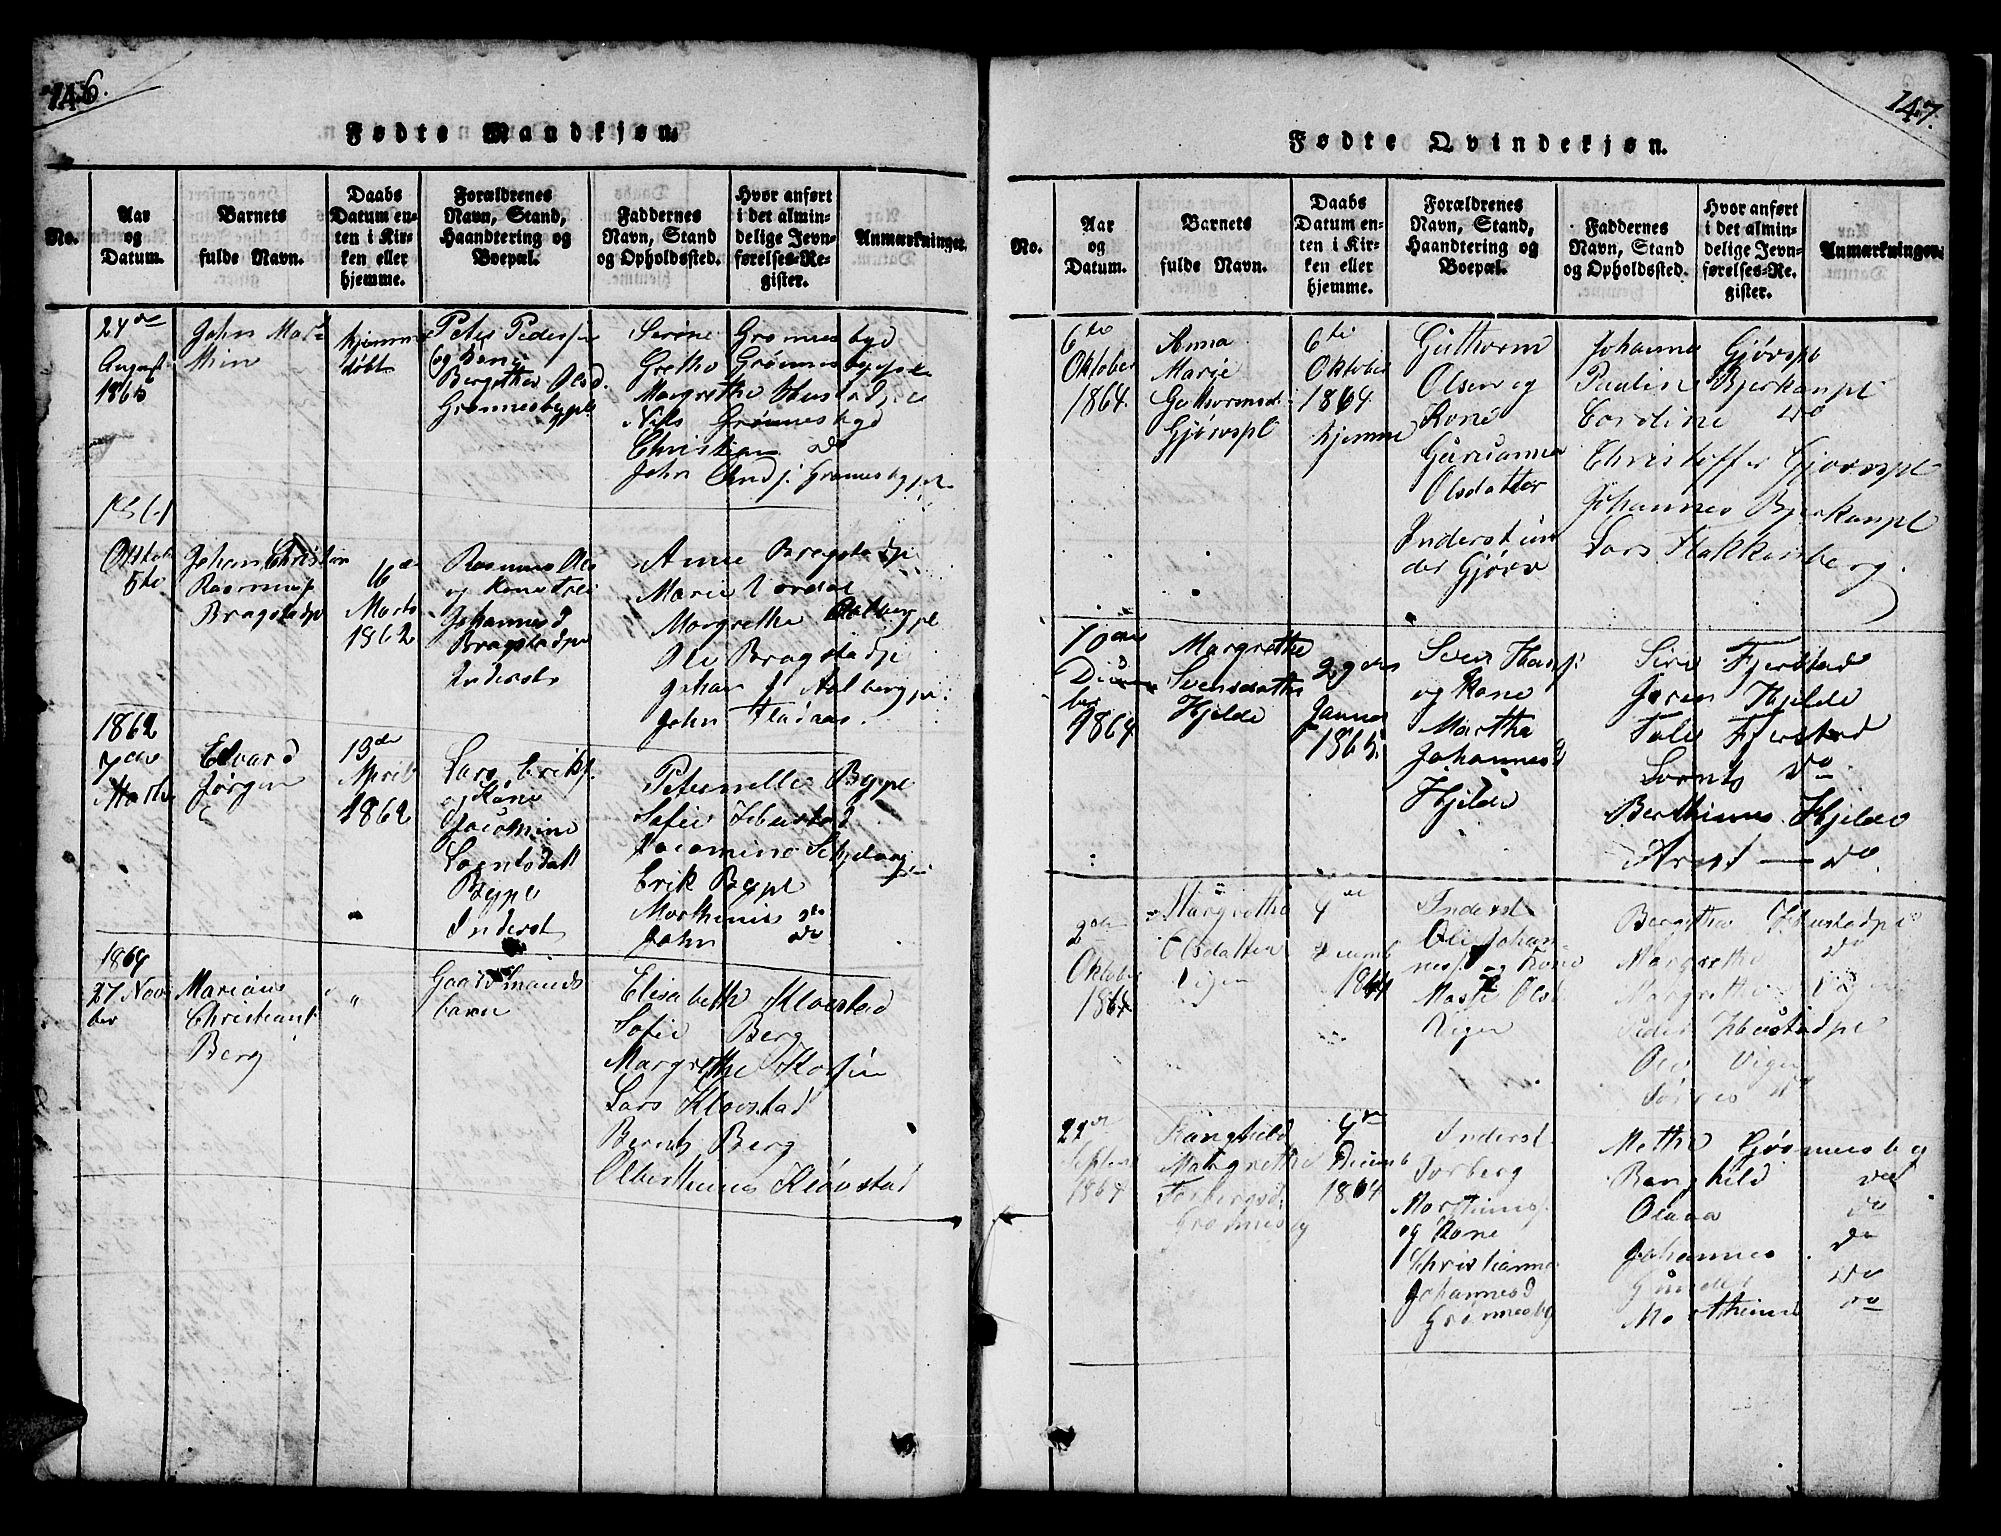 146.
Fødte Mandkjøn.
No.
Aar
og
Datum.
Barnets
fulde Navn.
Daabs
Datum en-
ten i Kir-
ken eller
hjemme.
Forældrenes
Navn, Stand,
Haandtering og
Boepæl.
Faddernes
Navn, Stand
og Opholdssted.
Hvor anført
i det almin-
delige Jevn-
førelses-Re-
gister.
Anmærkninger.
24de
August
1865
John Mar
thin
hjemme
døbt
Peter Peders
og Kone
Bergithe Olsd.
Grønnesbypl
Serine Grønnesbyd
Grethe Grønnesbypl
Margrethe
Nils Grønnesbyd
Christian do
John And. Grønnesbypl
1861
Oktobr
5te
Johan Christian
Rasmus
Bragstadpl
16de
Marts
1862
Rasmus Ols
og Kone
Johannesd
Bragstadpl
Inderst
Anne Bragstadpl
Marie
Margrethe Aalbergpl
Ole Bragstadpl
Johan J Aalbergpl
John Fladaas.
1862
7de
Marts
Edvard
Jørgen
13de
April
1862
Lars Eriks.
og Kone
Jacomine
Lorntsdatt
Bypl
Inderst
Peternelle Bypl
Sofie Ihbustad
Jacomine
Erik Bypl
Morthinus do
John do
1864
27 Novbr
ber
Marius
Christians
Berg
"
Gaardmands
barn
Elisabeth Klovstad
Sofie Berg
Margrethe
Lars Klovstad
Bernts Berg
Olberthinus Kløvstad
147.
Fødte Qvindekjøn.
No.
Aar
og
Datum.
Barnets
fulde Navn.
Daabs
Datum en-
ten i Kir-
ken eller
hjemme.
Forældrenes
Navn, Stand,
Haandtering og
Boepæl.
Faddernes
Navn, Stand
og Opholdssted.
Hvor anført
i det almin-
delige Jevn-
førelses-Re-
gister.
Anmærkninger.
6te
Oktober
1864.
Anna
Marie
Guthormsd.
Gjørvspl
6te
Oktober
1864.
hjemme
Guthorm
Olsen og
Kone
Guruanna
Olsdatter
Inderst un
der Gjørv
Johanna Gjørvspl
Paulin Bjerkanpl
Cordine do
Christoffer Gjørvspl
Johannes Bjerkanpl
Lars Hakkensberg.
10de
ber
1864
Margrethe
Svensdatter
Hjelde
29de
Januar
1865.
Sven Hans
og Kone
Martha
Johannesd
Hjelde
Siri Fjerstad
Joren Hjelde
Tale Fjerstad
Lornts do
Berthinus Hjelde
Arnt — do.
2den
Oktober
1864
Margrethe
Olsdatter
Vigen
4de
1864
Inderst
Ole Johan-
nes. og Kone
Olsd
Vigen
Bergitha Ihbustadpl
Margrethe do
Margrethe
Peder Ihbustadpl
Ole Vigen
do
22de
Septem
1864
Ranghild
Margrethe
Torbergsd.
Grønnesby
4de
Decemb
1864
Inderst
Torberg
Morthinus.
og Kone
Christianna
Johannesd
Grønnesby
Methe Grønnesby
Ranghild do
Olava do
Johannes do
Gunder do
Morthinus do